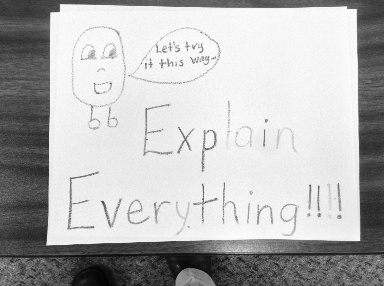 Let's try
it this way...
Explain
Everything!!!!